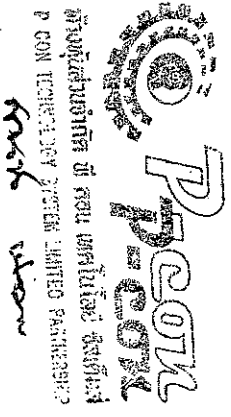 P-con
P-CON
ห้างหุ้นส่วนจำกัด พี คอน เทคโนโลยี ซิสเต็มส์
P CON TECHNOLOGY SYSTEM LIMITED PARTNERSHIP